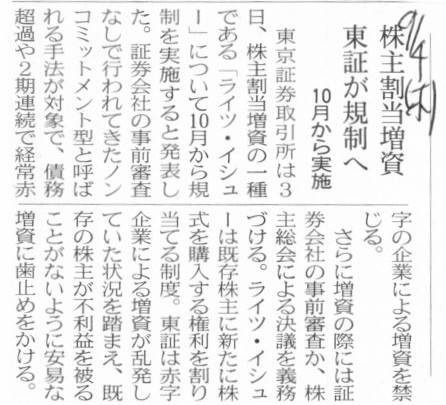 9/4(木)
株主割当増資
東証が規制へ
10月から実施
東京証券取引所は3
日、株主割当増資の一種
である「ライツ・イシュ
ー」について10月から規
制を実施すると発表し
た。証券会社の事前審査
なしで行われてきたノン
コミットメント型と呼ば
れる手法が対象で、債務
超過や2期連続で経常赤
字の企業による増資を禁
じる。
さらに増資の際には証
券会社の事前審査か、株
主総会による決議を義務
づける。ライツ・イシュ
ーは既存株主に新たに株
式を購入する権利を割り
当てる制度。東証は赤字
企業による増資が乱発し
ていた状況を踏まえ、既
存の株主が不利益を被る
ことがないように安易な
増資に歯止めをかける。